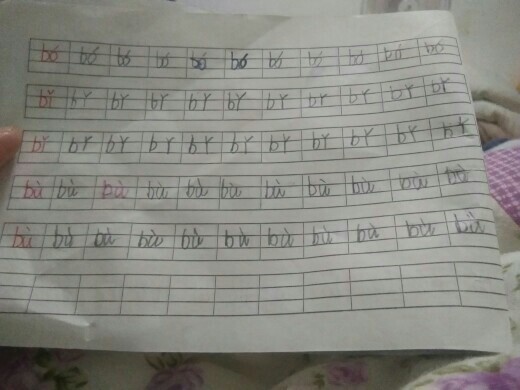 bó bó bó bó bó bó bó bó bó bó bó
bǐ bǐ bǐ bǐ bǐ bǐ bǐ bǐ bǐ bǐ bǐ
bǐ bǐ bǐ bǐ bǐ bǐ bǐ bǐ bǐ bǐ bǐ
bù bù bù bù bù bù bù bù bù bù bù
bù bù bù bù bù bù bù bù bù bù bù